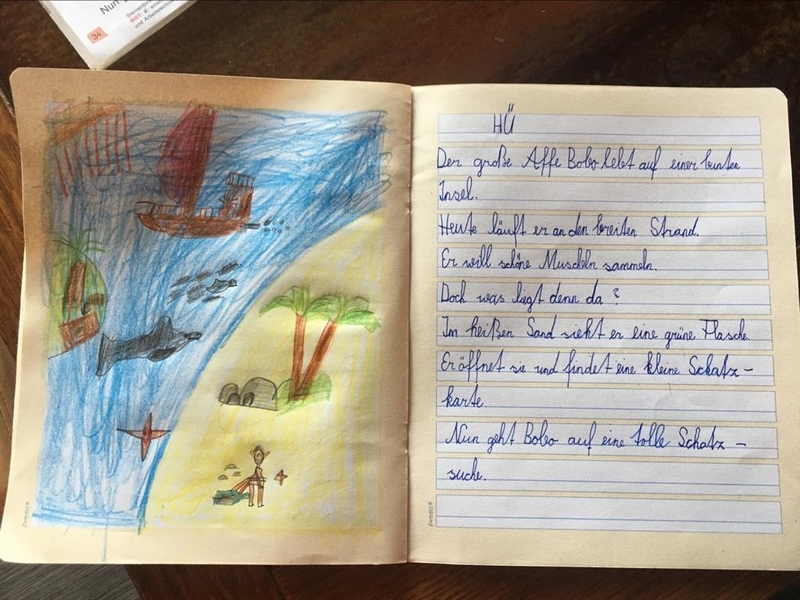 Num
34
HÜ
Der große Affe Bobo lebt auf einer bunten
Insel.
Heute läuft er an den breiten Strand.
Er will schöne Muscheln sammeln.
Doch was liegt denn da?
Im heißen Sand sieht er eine grüne Flasche.
Er öffnet sie und findet eine kleine Schatz-
karte.
Nun geht Bobo auf eine tolle Schatz-
suche.